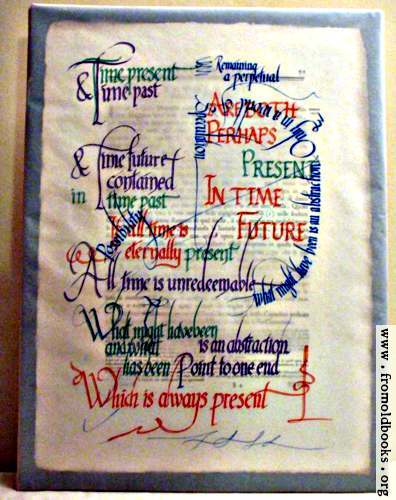 Time present
& Time past
Remaining
a perpetual
ARE BOTH
PERHAPS
PRESENT
IN TIME
FUTURE
& Time future
contained
in time past
If all time is
eternally present
All time is unredeemable
Possibility
Speculation
Only in a world of
What might have been is an abstraction
What might have been
and what
has been
is an abstraction
Point to one end
Which is always present
www.fromoldbooks.org